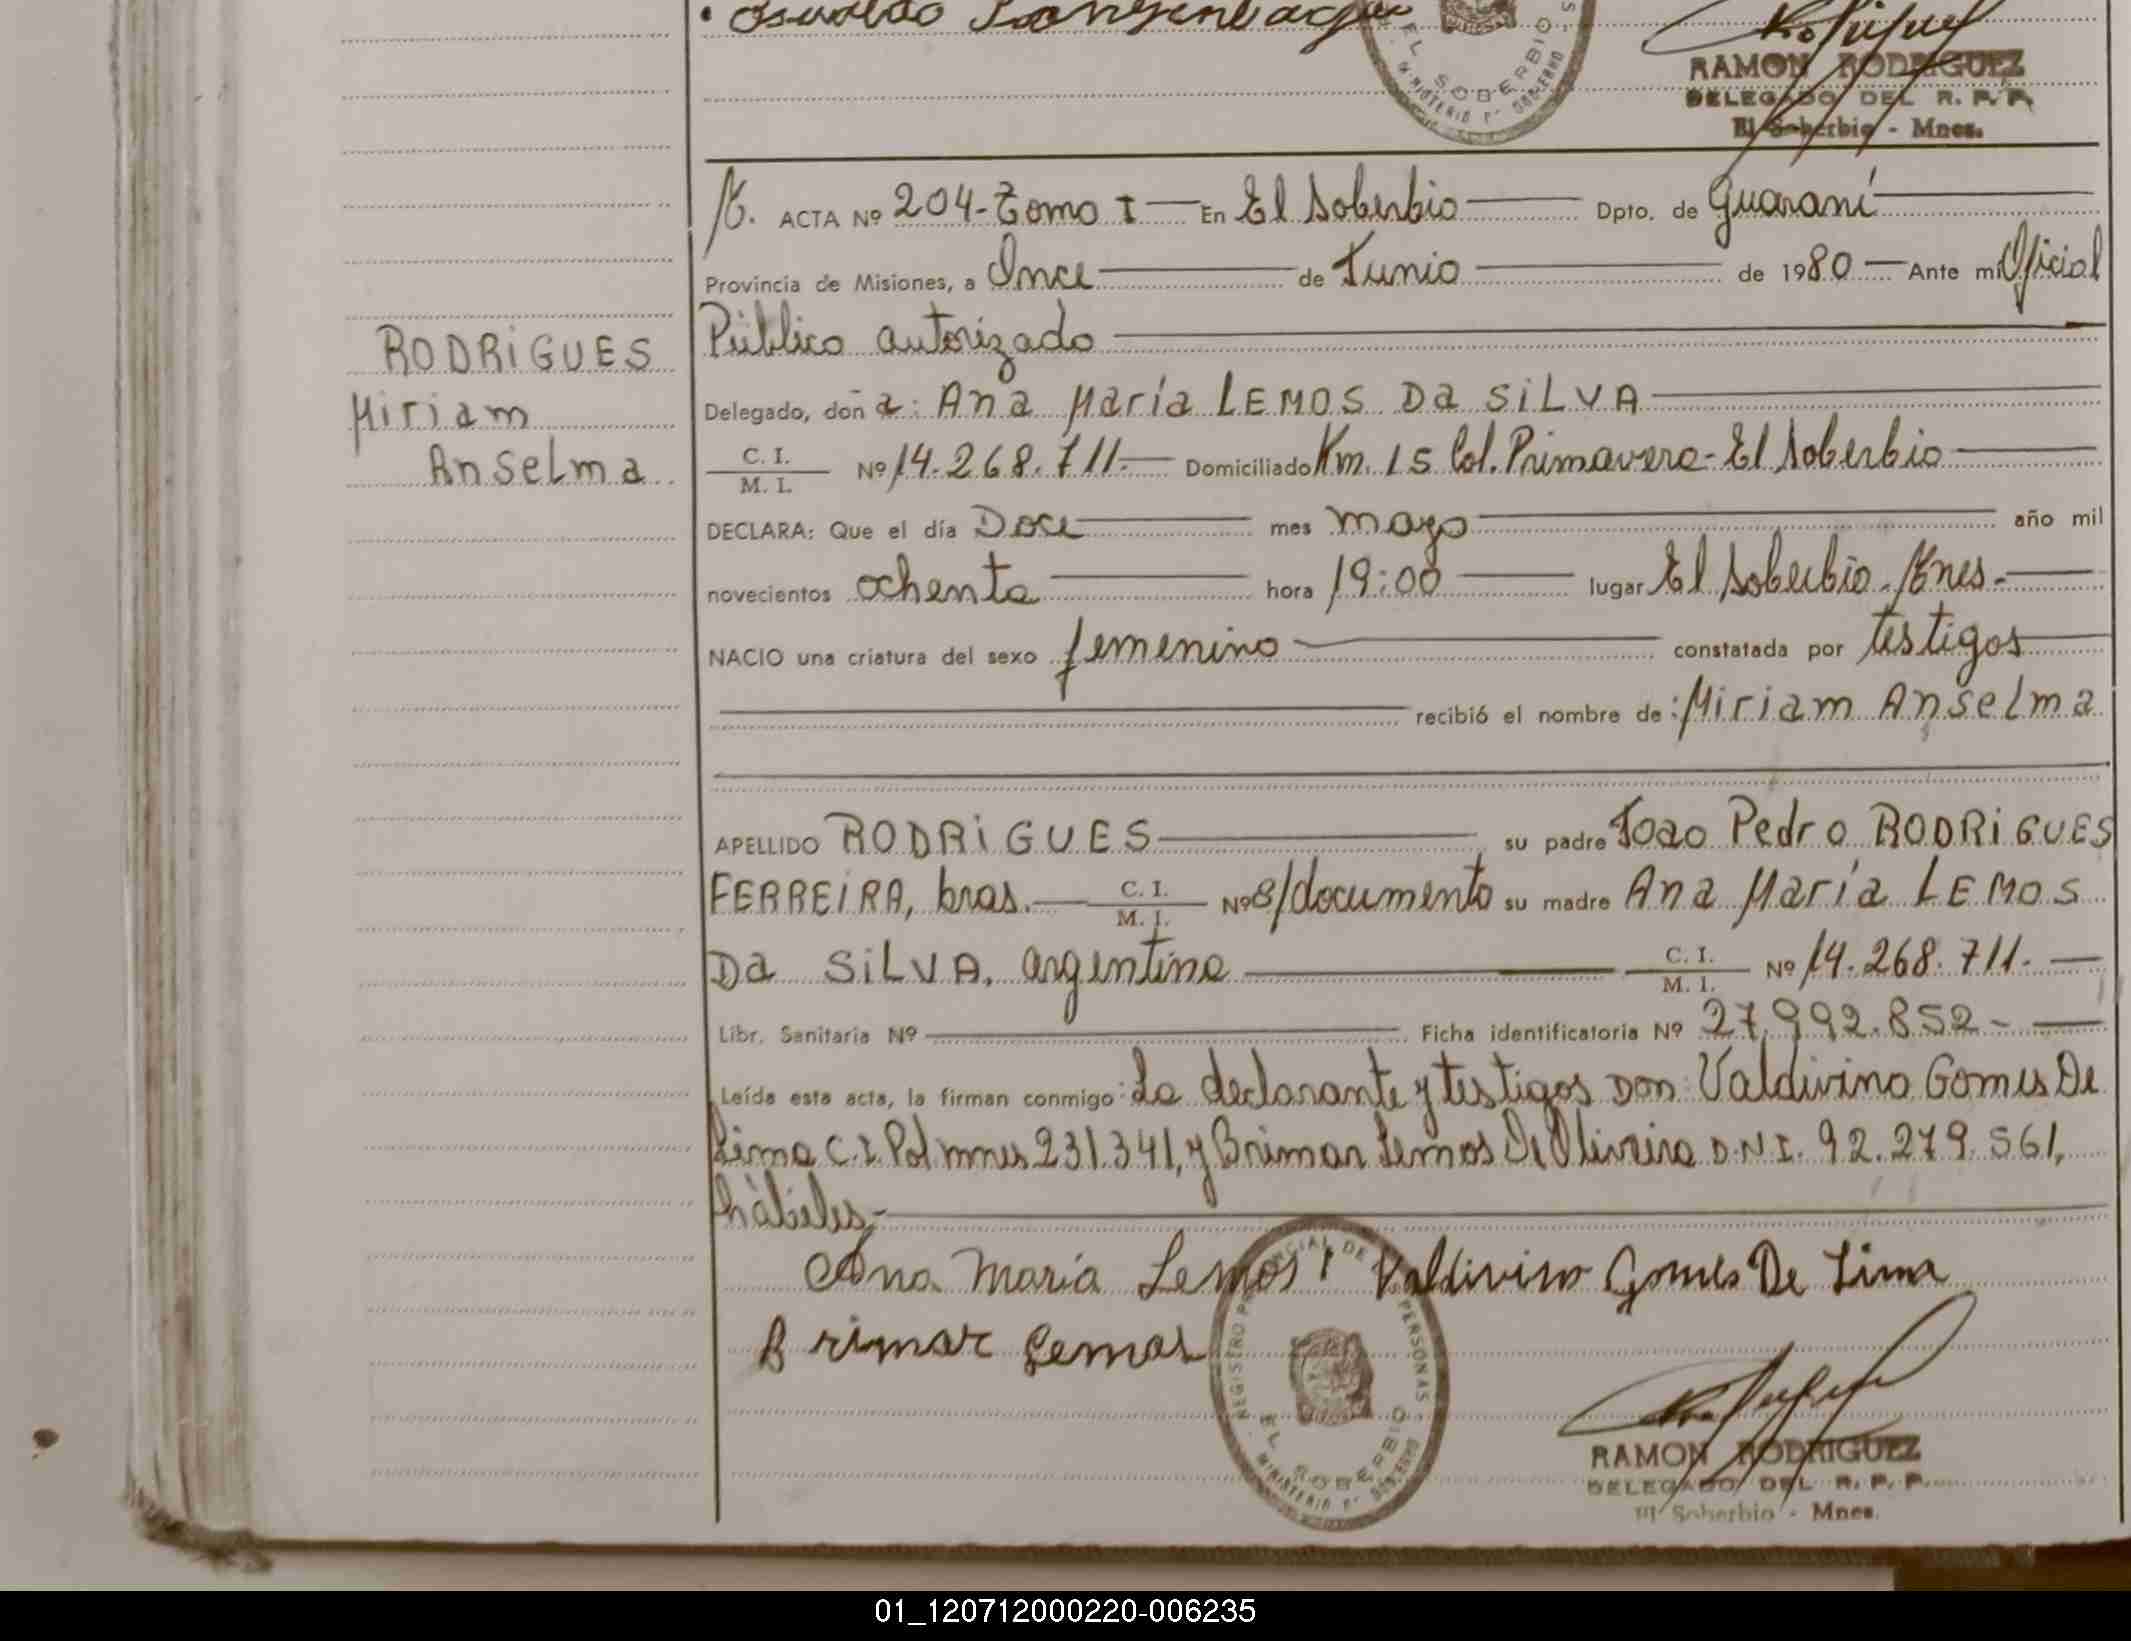 RAMON RODRIGUEZ
DELEGADO DEL R. P. P.
El Soberbio - Mnes.
EL SOBERBIO
RODRiGUES
Miriam
Anselma
ACTA Nº 204-Tomo I En El Soberbio Dpto. de Guaraní
Provincia de Misiones, a Once de Junio de 1980 Ante mi Oficial
Público autorizado
Delegado, doña: Ana María LEMOS Da SiLVA
C. I. / M. I. Nº 14.268.711.- Domiciliado Km. 15 Col. Primavera - El Soberbio
DECLARA: Que el día Doce mes mayo año mil
novecientos ochenta hora 19:00 lugar El Soberbio - Mnes.-
NACIO una criatura del sexo femenino constatada por testigos
recibió el nombre de: Miriam Anselma
APELLIDO RODRiGUES su padre Joao Pedro RODRiGUES
FERREiRA, bras. C. I. / M. I. Nº S/documento su madre Ana María LEMOS
Da SiLVA, argentina C. I. / M. I. Nº 14.268.711.
Libr. Sanitaria Nº Ficha identificatoria Nº 27.992.852-
Leída esta acta, la firman conmigo: La declarante y testigos Don: Valdivino Gomes De
Lima C.I. Pol mnes 231.341, y Brimar Lemos De Oliveira D.N.I. 92.279.561,
hábiles.-
Ana Maria Lemos Valdivino Gomes De Lima
Brimar Lemos
REGISTRO PROVINCIAL DE PERSONAS
EL SOBERBIO
RAMON RODRIGUEZ
DELEGADO DEL R. P. P.
El Soberbio - Mnes.
01_120712000220-006235